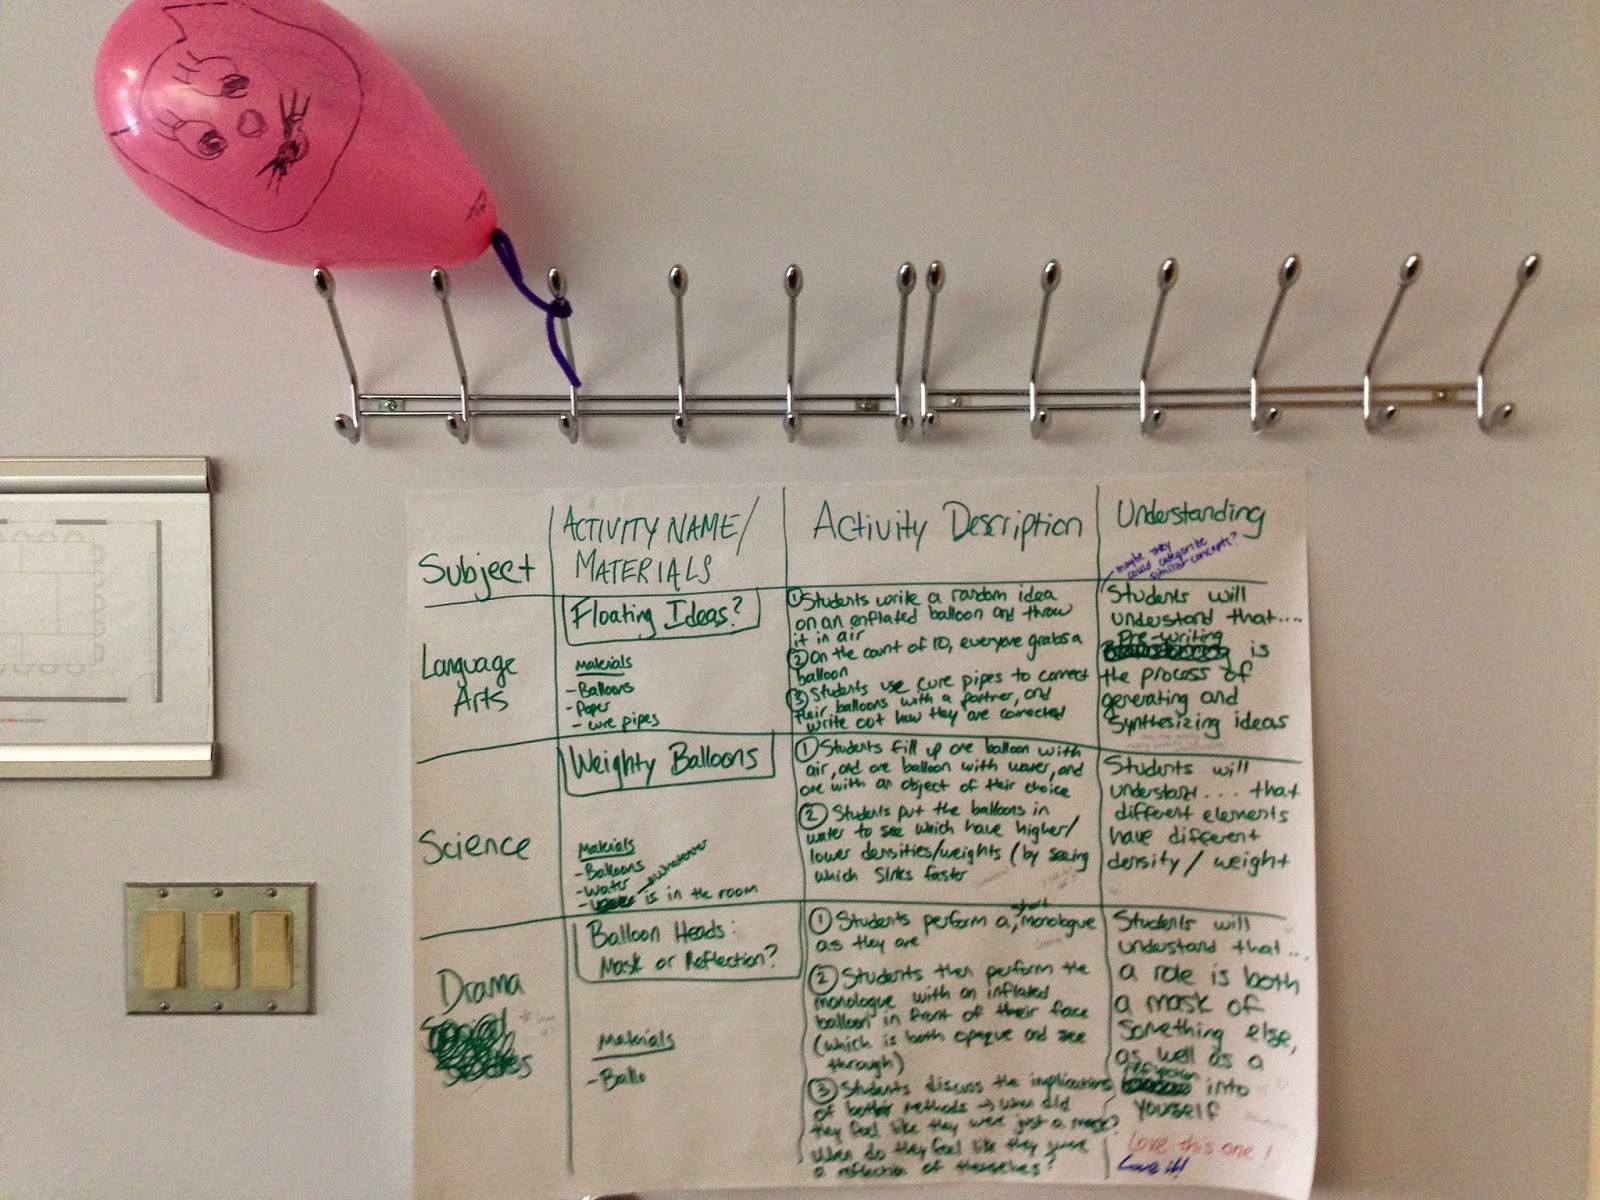 Subject
ACTIVITY NAME/
MATERIALS
Activity Description
Understanding
maybe they
could categorize
similar concepts?
Language
Arts
Floating Ideas?
Materials
- Balloons
- Paper
- cure pipes
① Students write a random idea
on an inflated balloon and throw
it in air
② On the count of 10, everyone grabs a
balloon
③ Students use cure pipes to connect
their balloons with a partner, and
write out how they are connected
Students will
understand that....
Pre-writing
is
the process of
generating and
synthesizing ideas
Science
Weighty Balloons
Materials
- Balloons
- Water
whatever
- is in the room
① Students fill up one balloon with
air, and one balloon with water, and
one with an object of their choice
② Students put the balloons in
water to see which have higher/
lower densities/weights (by seeing
which sinks faster
Students will
understand.... that
different elements
have different
density / weight
Drama
Balloon Heads:
Mask or Reflection?
Materials
- Ballo
① Students perform a short monologue
as they are
② Students then perform the
monologue with an inflated
balloon in front of their face
(which is both opaque and see
through)
③ Students discuss the implications
of both methods → when did
they feel like they were just a mask?
When do they feel like they were
a reflection of themselves?
Students will
understand that...
a role is both
a mask of
something else,
as well as a
into
yourself
Love this one!
Love it!